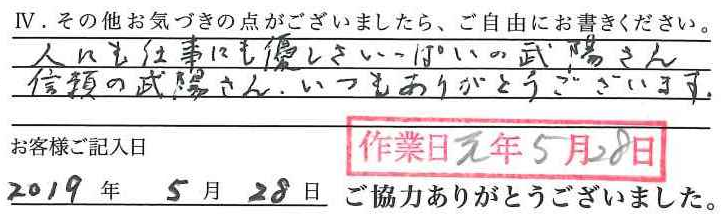 Ⅳ．その他お気づきの点がございましたら、ご自由にお書きください。
人にも仕事にも優しさいっぱいの武陽さん
信頼の武陽さん．いつもありがとうございます．
お客様ご記入日
作業日元年5月28日
2019年 5月 28日 ご協力ありがとうございました。